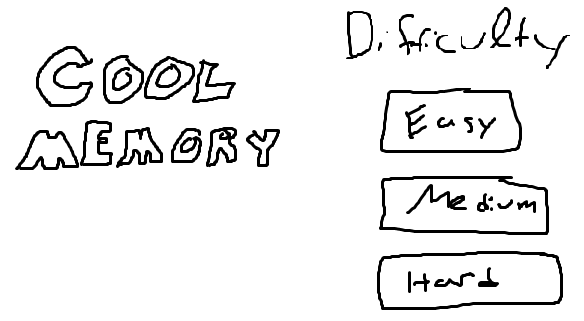 COOL
MEMORY
Difficulty
Easy
Medium
Hard